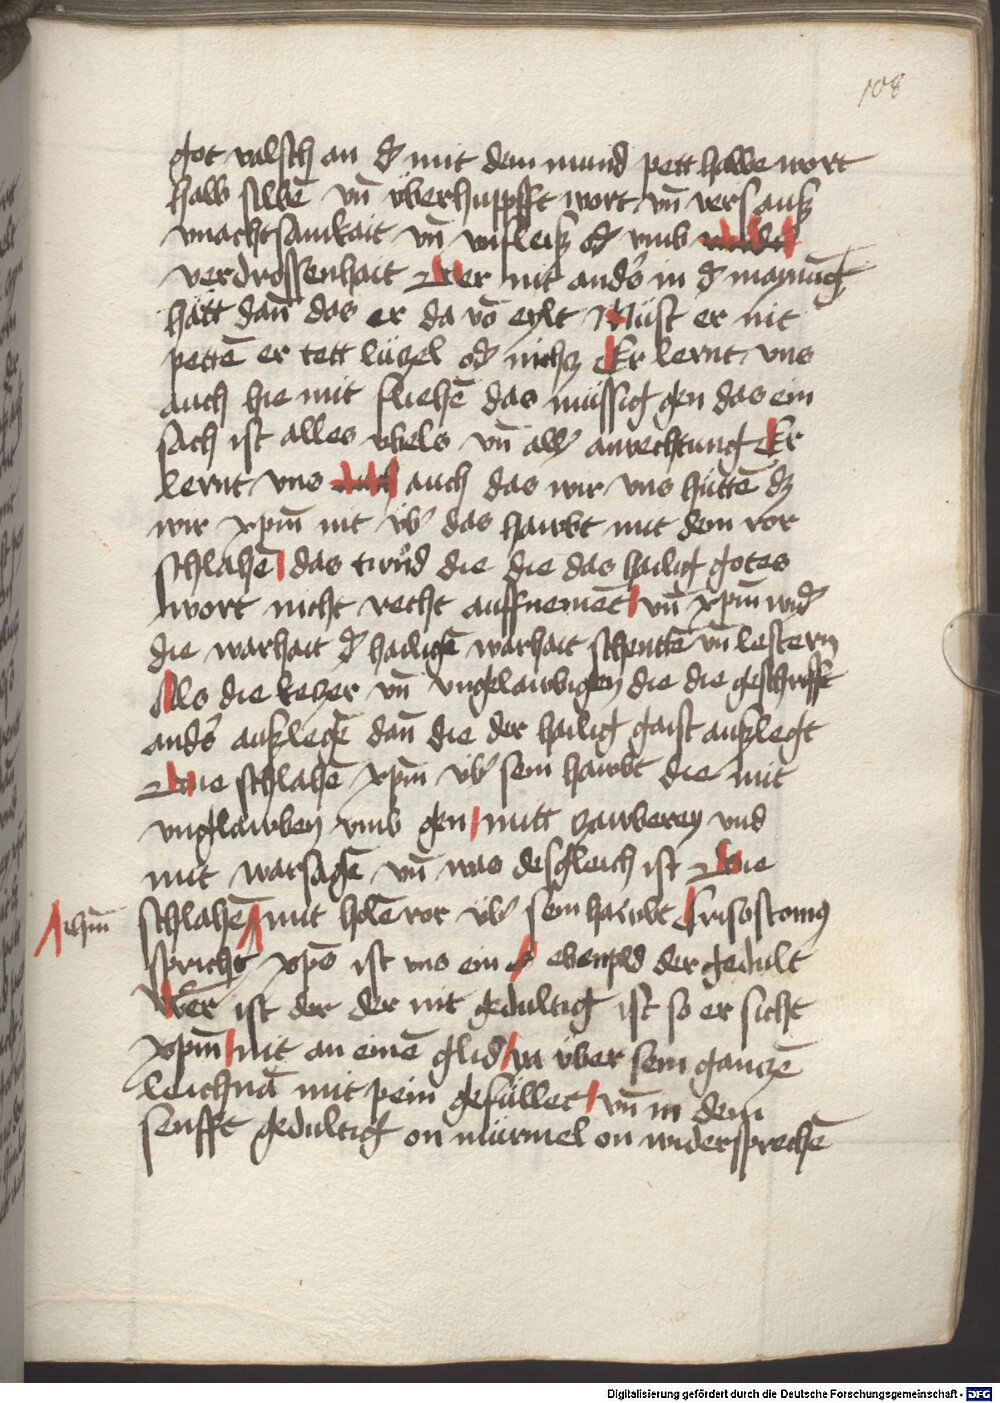 108
got valsch an d̕ mit dem mund pett halbe wort
halb silbē vn̄ v̈berhuppfft wort vn̄ vers auß
vnachtsamkait vn̄ vnfleiß od̕ vmb
verdrossenhait Wer nit anders in d̕ maynu̅g
hătt dan̄ das er da vō eylt Mu̇st er nit
pettē er tett lu̇tzel od̕ nichtz Er lernt vns
auch hie mit fliehē das mu̇ssig gen das ein
sach ist alles v̈bels vn̄ all̕ anvechtung Er
lernt vns auch das wir vns hu̇ttē dz
wir xpm̄ nit v̈b̕ das hawbt mit dem ror
schlahē das tund die die das hailig gotes
wort nicht recht auffnement vn̄ xpm̄ wid̕
die warhait d̕ hailigē warhait schentē vn̄ lestern
Als die ketzer vn̄ vngelawbigen die die geschrifft
anders auszlegē dan̄ die der hailig gaist auszlegt
Die schlahē xpm̄ v̈b̕ sein hawbt die mit
vnglawben vmb gen mitt zawberey vnd
mit warsagē vn̄ was desgleich ist Die
schlahē in mit holē ror v̈b̕ sein hawbt Crisostomꝰ
spricht xp̄s ist vns ein ebenpild der gedult
Wer ist der der nit gedultig ist so er sicht
xpm̄ nit an einē glid ja v̈ber sein gantzē
leichnā mit pein gefu̇llet vn̄ in dem
senfft gedultig on mu̇rmel on widersprechē
Digitalisierung gefördert durch die Deutsche Forschungsgemeinschaft - DFG